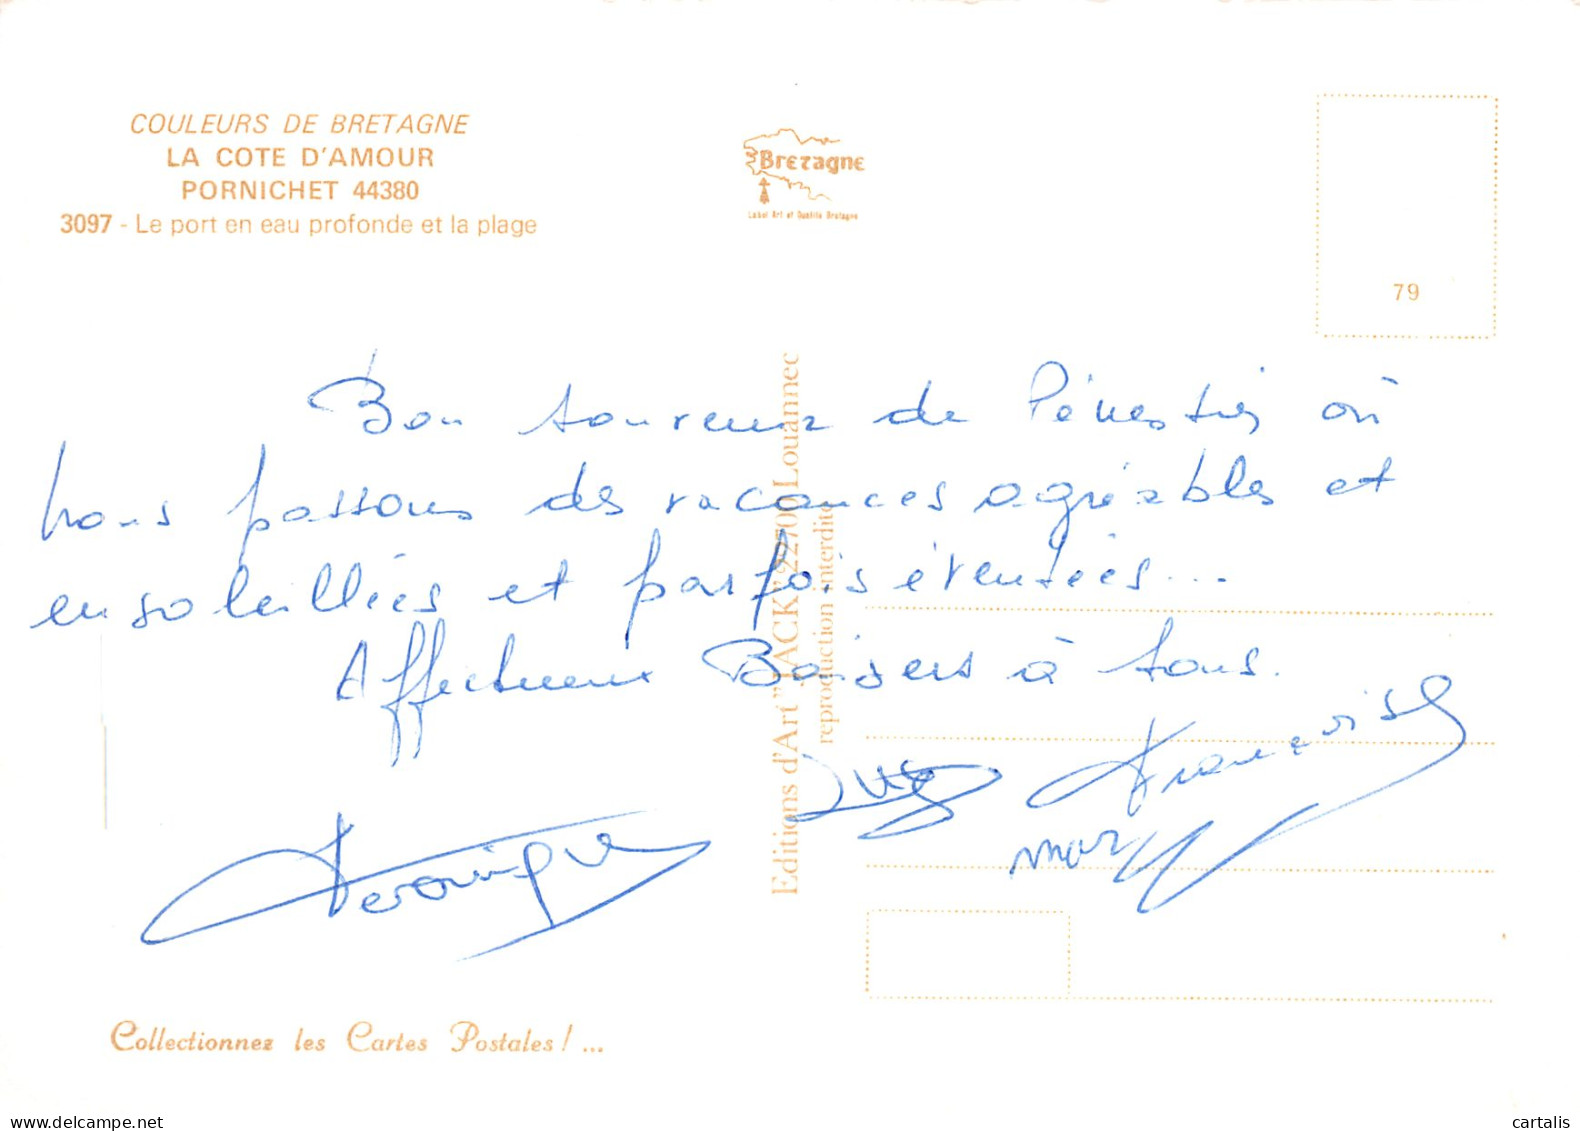 COULEURS DE BRETAGNE
LA COTE D'AMOUR
PORNICHET 44380
3097 - Le port en eau profonde et la plage
Bretagne
Label Art et Qualité Bretagne
79
Bon souvenir de Pénestin où
nous passons des vacances agréables et
ensoleillées et parfois éventées...
Affectueux Baisers à tous.
Françoise
Véronique
Editions d'Art "JACK" 22700 Louannec
reproduction interdite
Collectionnez les Cartes Postales ! ...
delcampe.net
cartalis